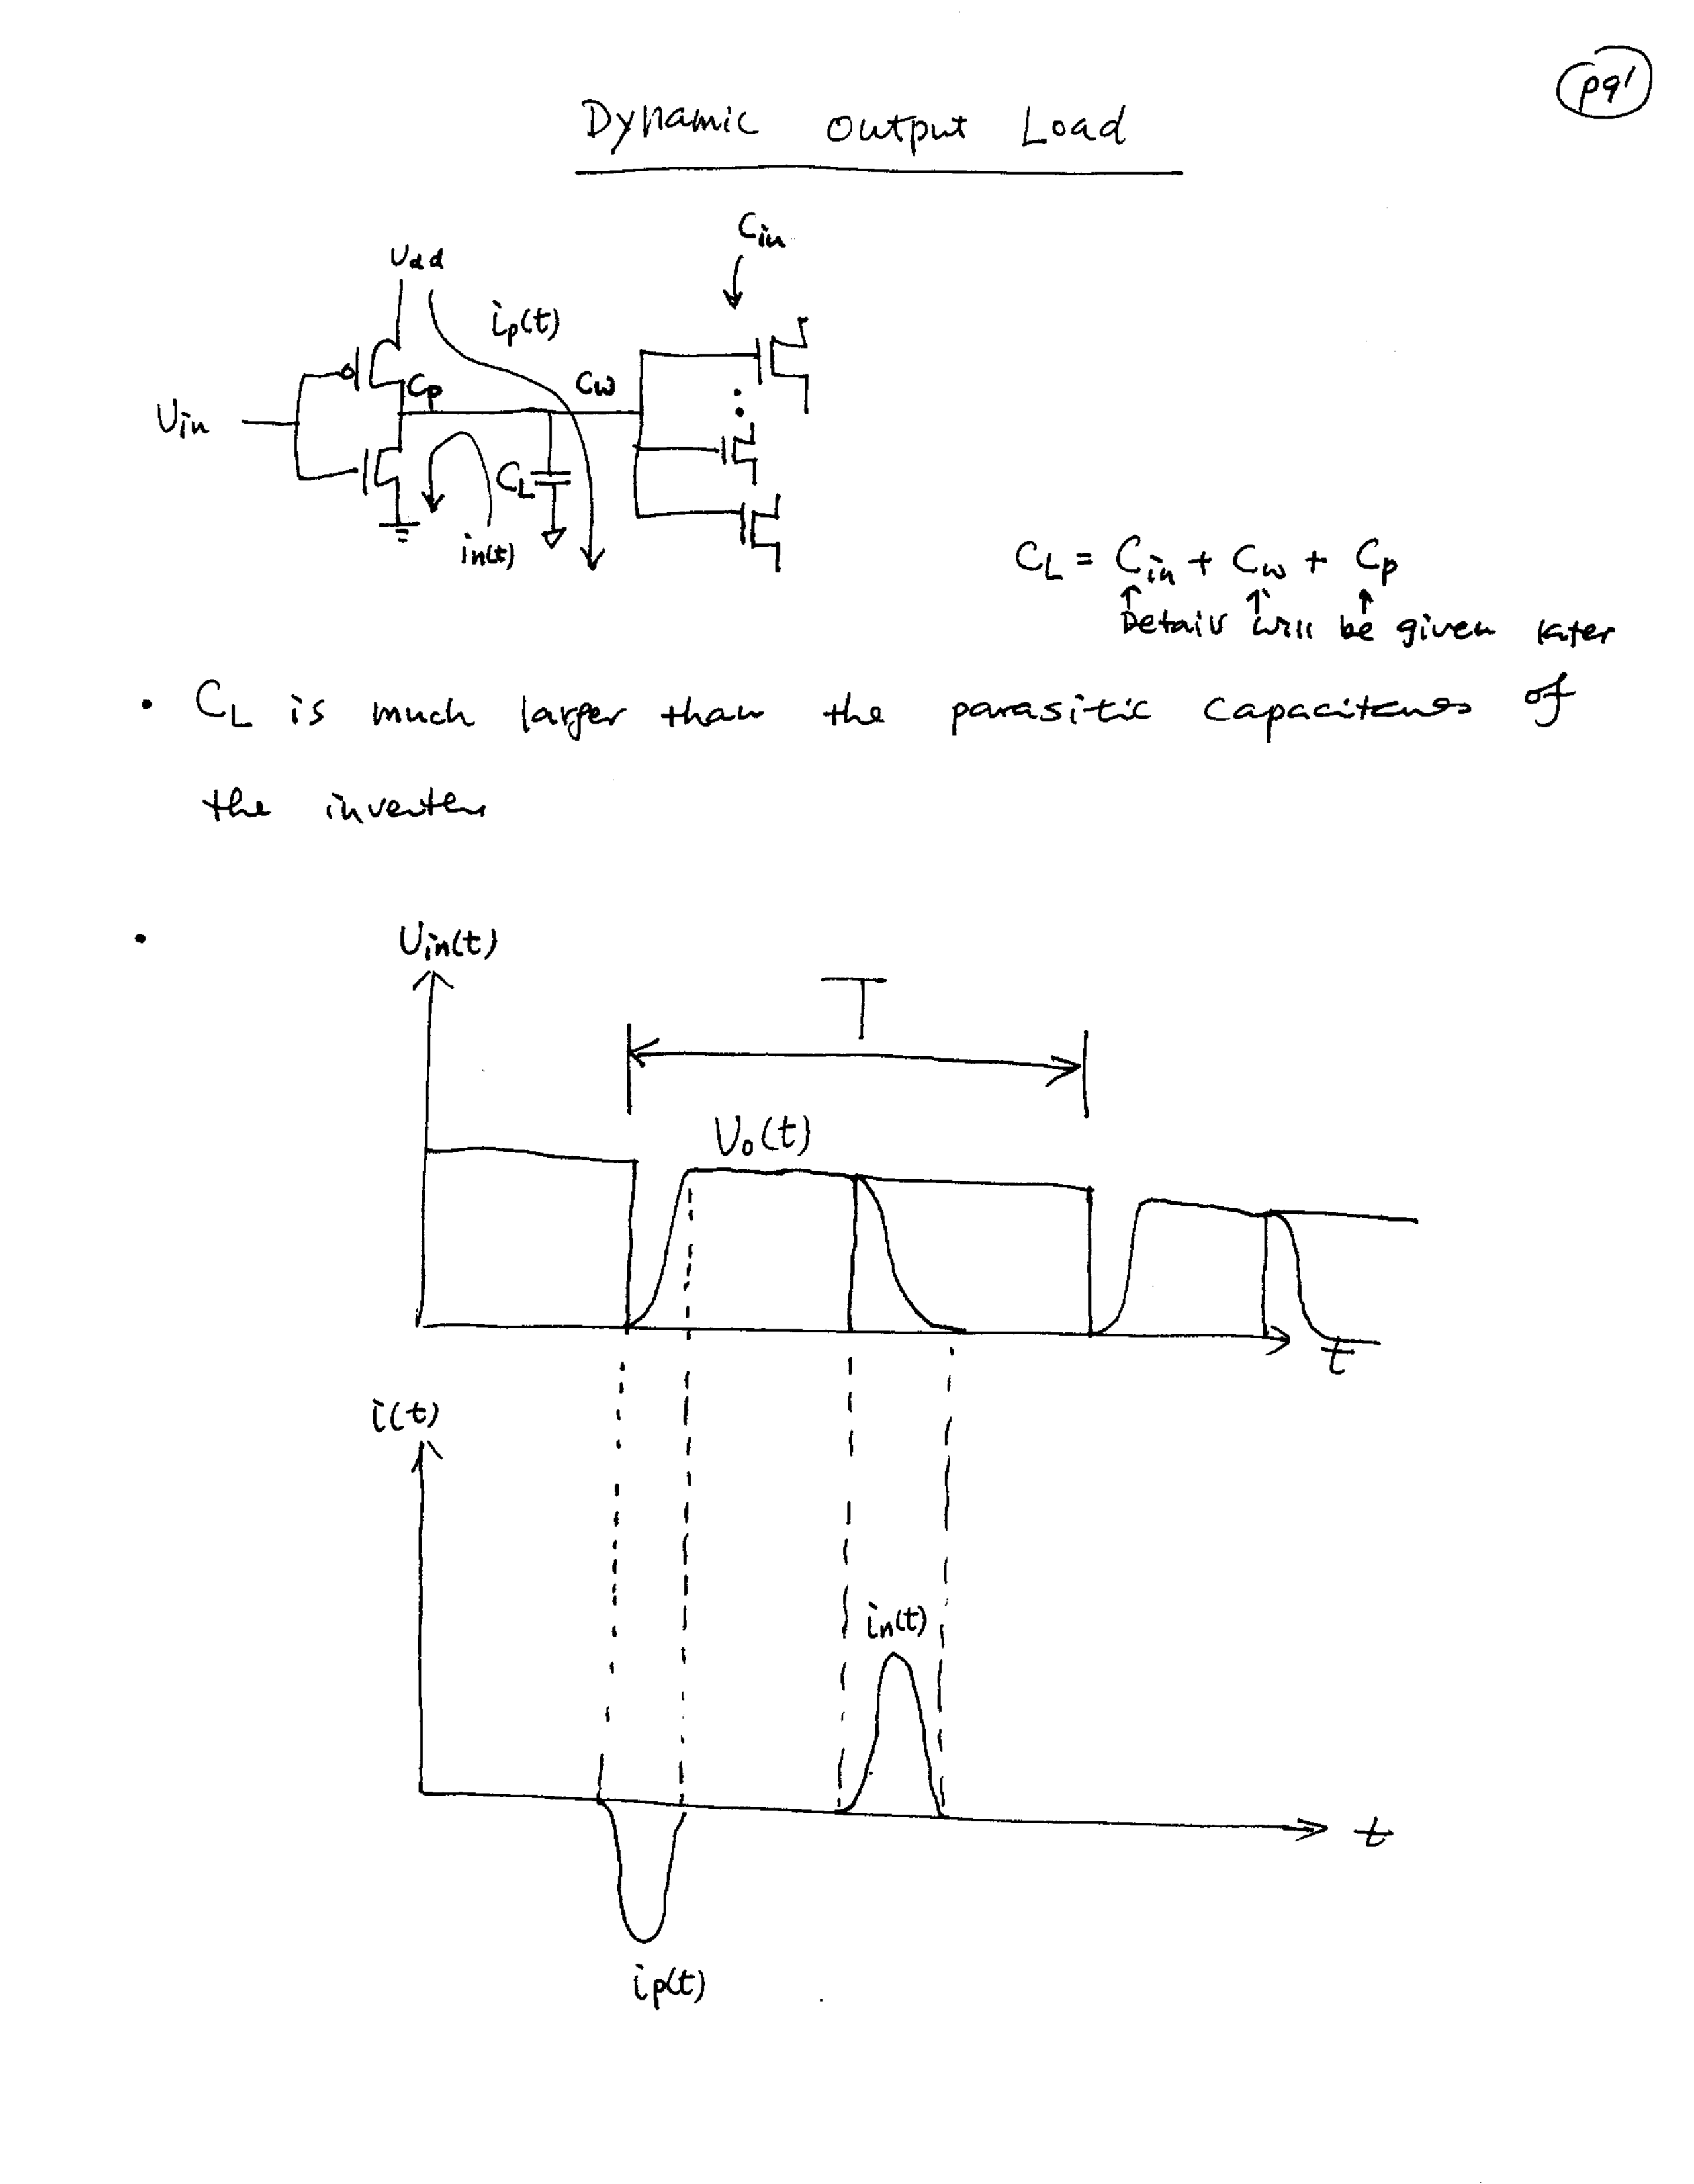 pg1
Dynamic Output Load
Cin
Vdd
ip(t)
Cp
Cw
Vin
CL
in(t)
CL = Cin + Cw + Cp
Details will be given later
• CL is much larger than the parasitic capacitances of
the inverter
•
Vin(t)
T
Vo(t)
t
i(t)
in(t)
t
ip(t)